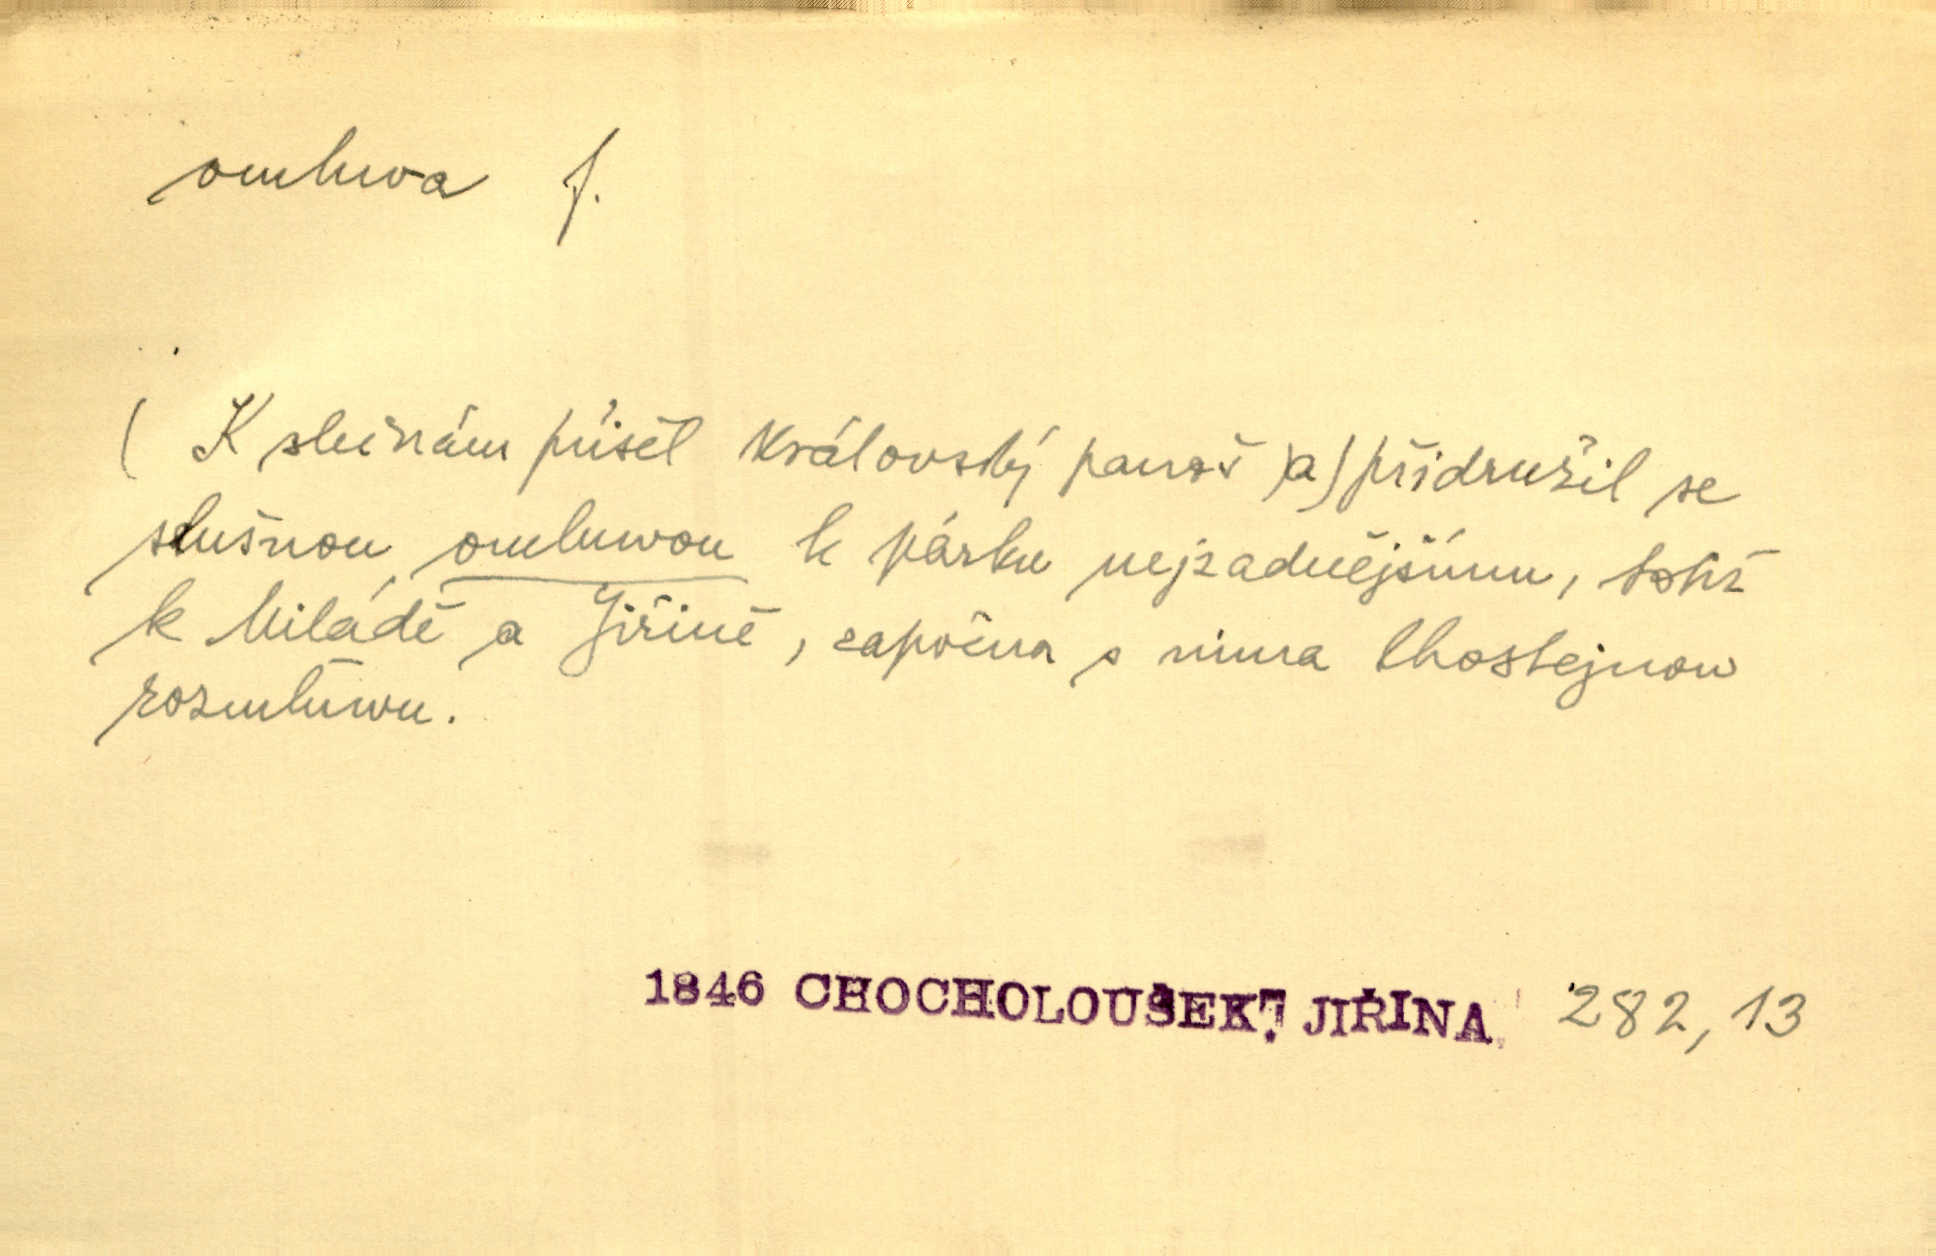 omluva f.
( K slečnám přišel královský panoš )a) přidružil se
slušnou omluvou k párku nejzadnějšímu, totiž
k Miládě a Jiřině, započna s nima lhostejnou
rozmluvu.
1846 CHOCHOLOUŠEK, JIŘINA 282, 13